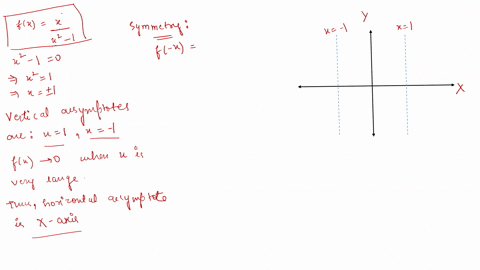 f(x) = x / x² - 1
x² - 1 = 0
⇒ x² = 1
⇒ x = ±1
Vertical asymptotes
are: x = 1, x = -1
f(x) → 0 when x is
very range.
thus, horizontal asymptote
is X-axis
symmetry:
f(-x) =
x = -1
Y
x = 1
X